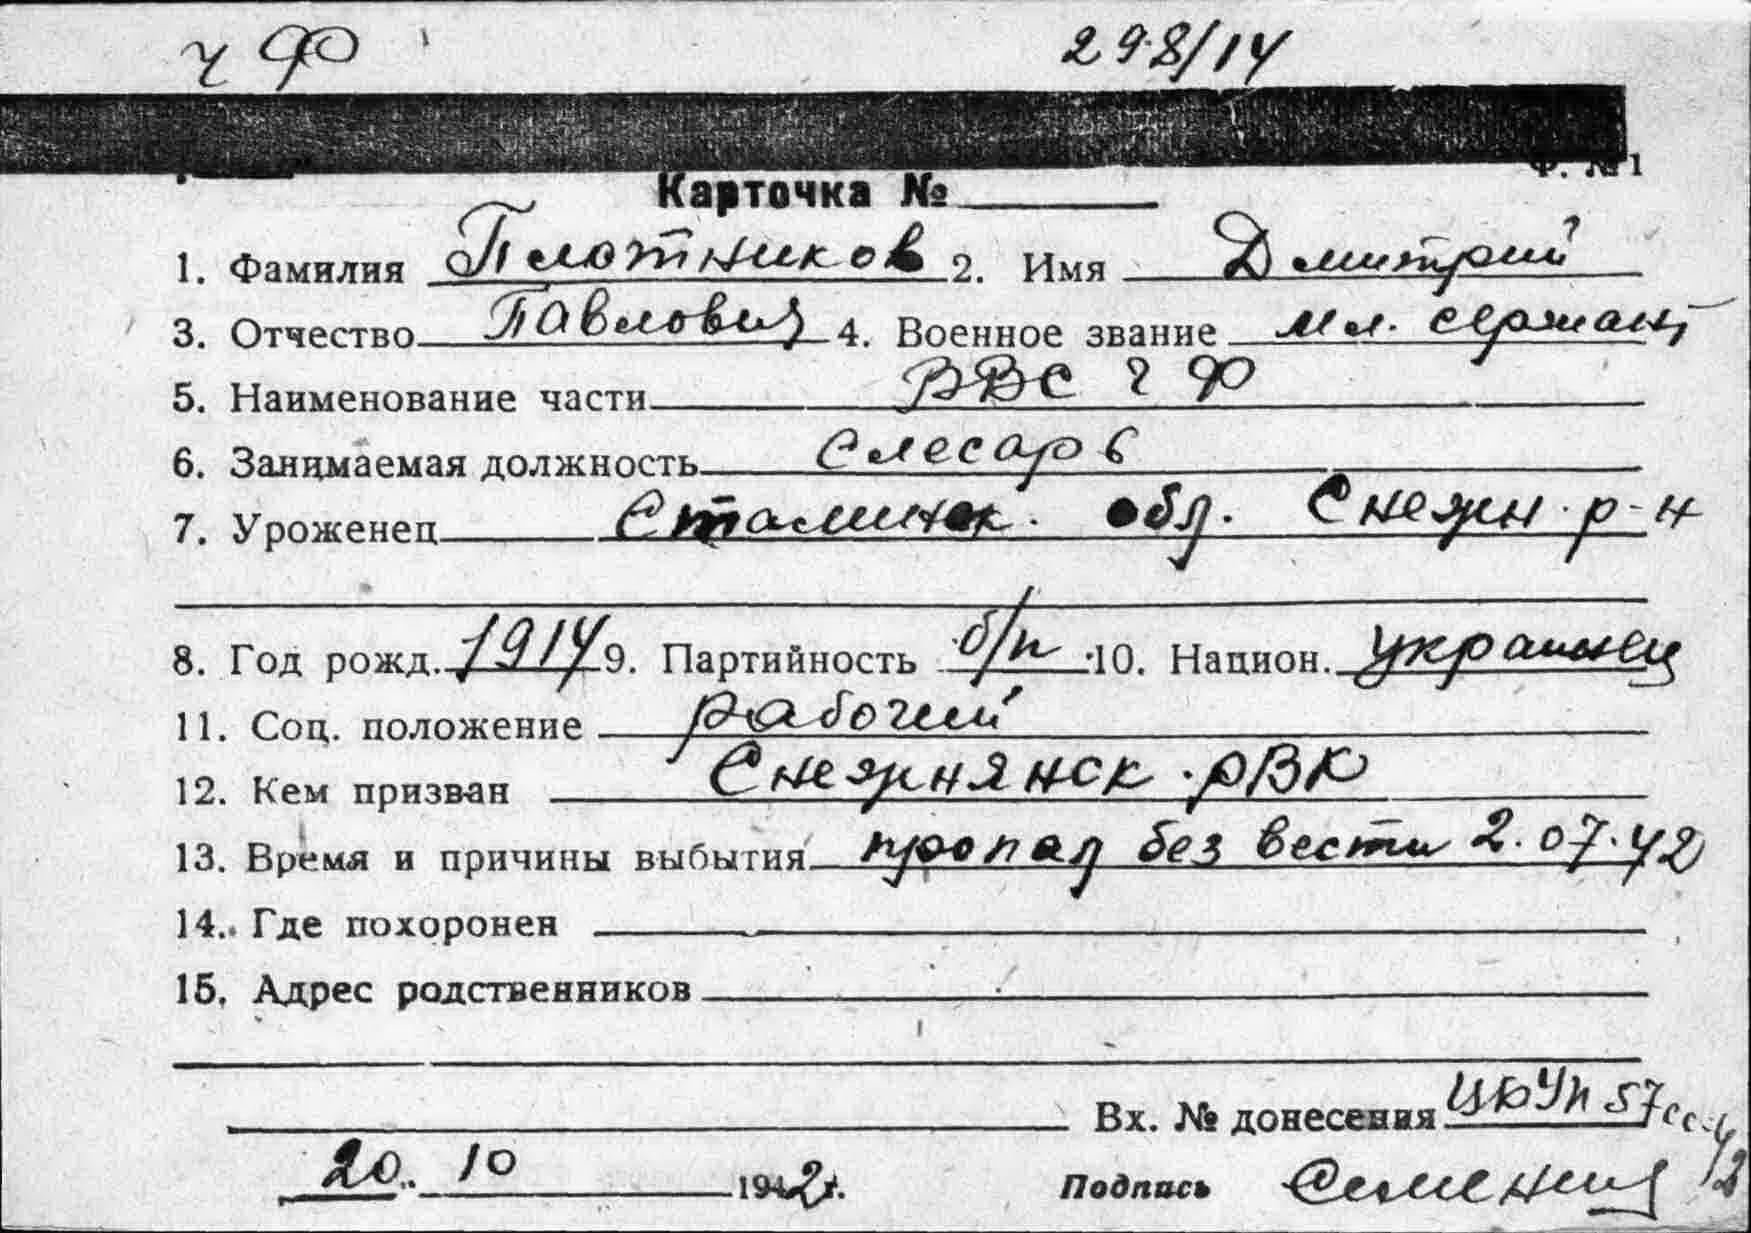 ч Ф 298/14
Ф. № 1
Карточка №
1. Фамилия Плотников 2. Имя Дмитрий
3. Отчество Павлович 4. Военное звание мл. сержант
5. Наименование части ВВС ч Ф
6. Занимаемая должность Слесарь
7. Уроженец Сталинск. обл. Снежн. р-н
8. Год рожд. 1914 9. Партийность б/п 10. Национ. украинец
11. Соц. положение рабочий
12. Кем призван Снежнянск. РВК
13. Время и причины выбытия пропал без вести 2.07.42
14. Где похоронен
15. Адрес родственников
Вх. № донесения 57сс-42
20. 10 1942г. Подпись